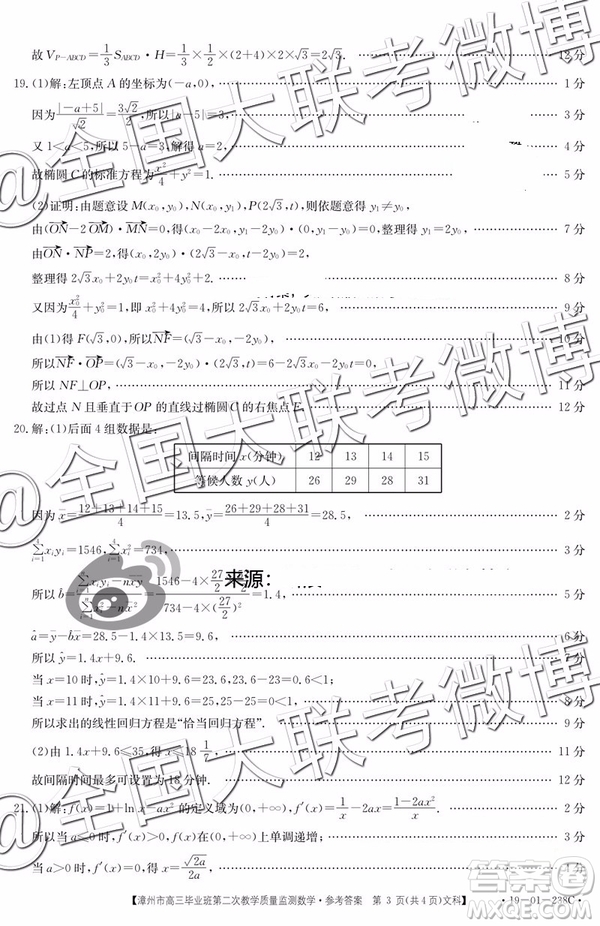 故 V_{P-ABCD}=1/3 S_{ABCD}·H=1/3×1/2×(2+4)×2×2√3=2√3. 12分
19.(1)解:左顶点 A 的坐标为(-a,0), 1分
因为|-a+5|/√2=3√2/2,所以|a-5|=3, 3分
又 1<a<5,所以 5-a=3,解得 a=2,
故椭圆 C 的标准方程为 x²/4+y²=1. 5分
(2)证明:由题意设 M(x₀,y₀),N(x₀,y₁),P(2√3,t),则依题意得 y₁≠y₀,
由(ON-2OM)·MN=0,得(x₀-2x₀,y₁-2y₀)·(0,y₁-y₀)=0,整理得 y₁=2y₀, 7分
由ON·NP=2,得(x₀,2y₀)·(2√3-x₀,t-2y₀)=2,
整理得 2√3x₀+2y₀t=x₀²+4y₀²+2. 8分
又因为 x₀²/4+y₀²=1,所以 x₀²+4y₀²=4,所以 2√3x₀+2y₀t=6, 9分
由(1)得 F(√3,0),所以NF=(√3-x₀,-2y₀), 10分
所以NF·OP=(√3-x₀,-2y₀)·(2√3,t)=6-2√3x₀-2y₀t=0,
所以 NF⊥OP, 11分
故过点 N 且垂直于 OP 的直线过椭圆 C 的右焦点 F. 12分
20.解:(1)后面 4 组数据是:
间隔时间 x(分钟) 12 13 14 15
等候人数 y(人) 26 29 28 31
因为 x̄=(12+13+14+15)/4=13.5,ȳ=(26+29+28+31)/4=28.5, 2分
∑_{i=1}^{4} xᵢyᵢ=1546,∑_{i=1}^{4} xᵢ²=734, 3分
来源:
所以 b̂=(∑xᵢyᵢ-nx̄ȳ)/(∑xᵢ²-nx̄²)=(1546-4×27/2)/(734-4×(27/2)²)=1.4, 5分
â=ȳ-b̂x̄=28.5-1.4×13.5=9.6, 6分
所以 ŷ=1.4x+9.6. 7分
当 x=10 时,ŷ=1.4×10+9.6=23.6,23.6-23=0.6<1;
当 x=11 时,ŷ=1.4×11+9.6=25,25-25=0<1, 8分
所以求出的线性回归方程是“恰当回归方程”. 9分
(2)由 1.4x+9.6≤35,得 x≤18 1/7, 11分
故间隔时间最多可设置为 18 分钟. 12分
21.(1)解:f(x)=1+ln x-ax² 的定义域为(0,+∞),f′(x)=1/x-2ax=(1-2ax²)/x, 2分
所以当 a≤0 时,f′(x)>0,f(x)在(0,+∞)上单调递增; 3分
当 a>0 时,f′(x)=0,得 x=√(2a)/2a,
【漳州市高三毕业班第二次教学质量监测数学·参考答案 第 3 页(共 4 页)文科】 ·19-01-238C·
@全国大联考微博
@全国大联考微博
@全国大联考微博